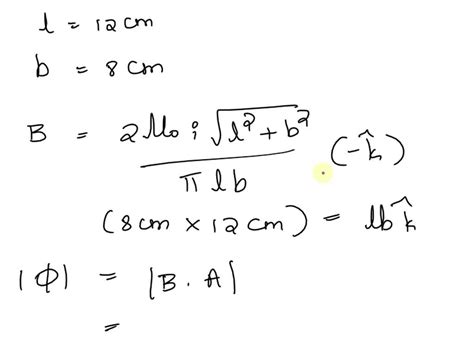 l = 12 cm
b = 8 cm
B = 2 μ₀ i √(l² + b²) / π l b (-k̂)
(8 cm × 12 cm) = lb k̂
|ϕ| = |B . A|
=